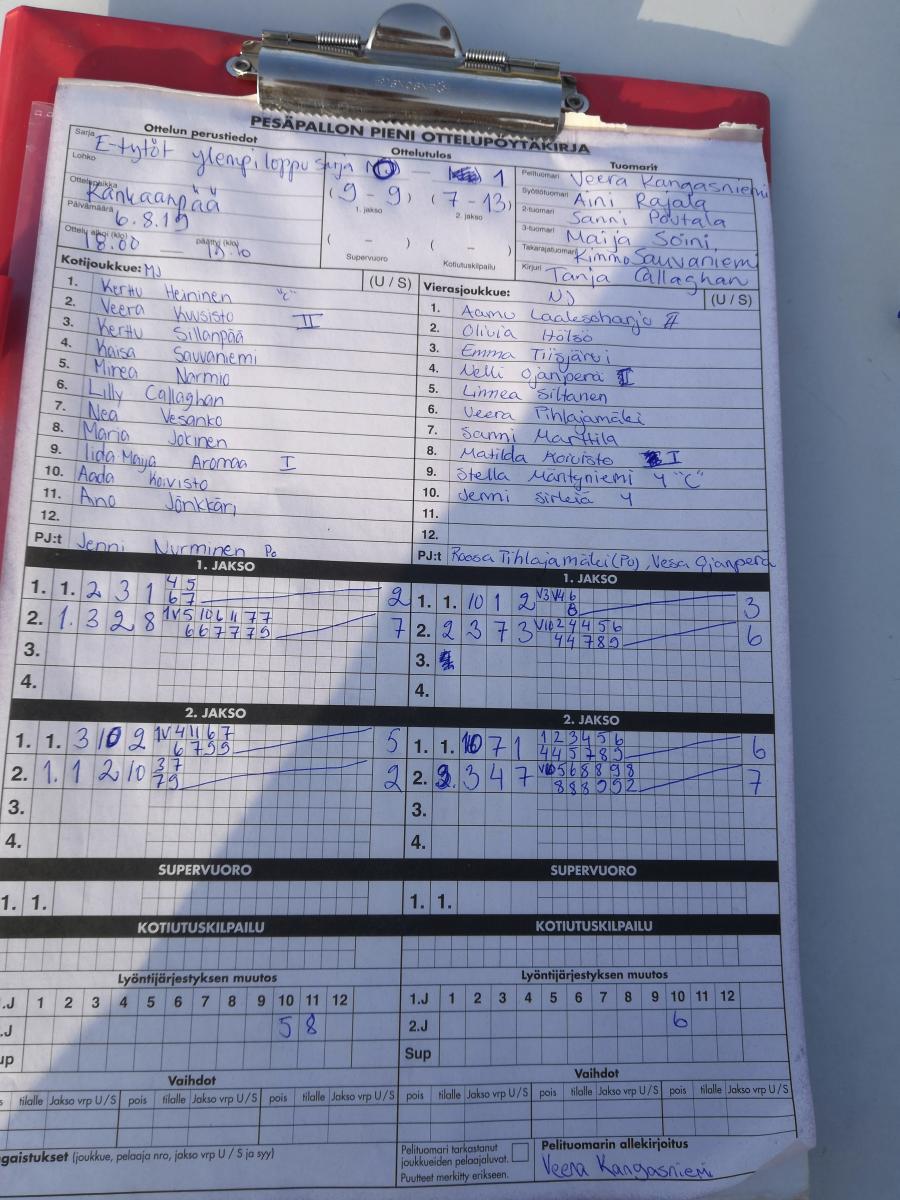 PESÄPALLON PIENI OTTELUPÖYTÄKIRJA
Ottelun perustiedot
Ottelutulos
Tuomarit
Sarja E-tytöt ylempi loppusarja
0 — 1
Lohko
Ottelupaikka Kankaanpää
Päivämäärä 6.8.19
Ottelu alkoi (klo) 18.00 päättyi (klo)
(9 - 9) (7 - 13)
1. jakso 2. jakso
( – ) ( – )
Supervuoro Kotiutuskilpailu
Pelituomari Veera Kangasniemi
Syöttötuomari Aini Rajala
2-tuomari Sanni Poutala
3-tuomari Maija Soini
Takarajatuomari Kimmo Sauvaniemi
Kirjuri Tanja Callaghan
Kotijoukkue: (U / S)
1. Kerttu Heininen "C"
2. Veera Kuusisto II
3. Kerttu Sillanpää
4. Kaisa Sauvaniemi
5. Minea Narmio
6. Lilly Callaghan
7. Nea Vesanko
8. Marja Jokinen
9. Iida-Maija Aromaa I
10. Aada Koivisto
11. Ano Jönkkäri
12.
PJ:t Jenni Nurminen Po
Vierasjoukkue: (U / S)
1. Aamu Laaksoharju II
2. Olivia Hölsö
3. Emma Tiisjärvi
4. Nelli Ojanperä
5. Linnea Siltanen
6. Veera Pihlajamäki
7. Sanni Marttila
8. Matilda Koivisto I
9. Stella Mäntyniemi 4 "C"
10. Jenni Sirkiä 4
11.
12.
PJ:t Roosa Pihlajamäki (Po), Vesa Ojanperä
1. JAKSO
1. 1. 2 3 1 4 5 2
6 7
2. 1. 3 2 8 1V 5 10 6 11 7 7 7
6 6 7 7 7 9
3.
4.
1. JAKSO
1. 1. 10 1 2 V3 V4 6 3
8
2. 2 3 7 3 V10 2 4 4 5 6 6
4 4 7 8 9
3.
4.
2. JAKSO
1. 1. 3 10 2 1V 4 11 6 7 5
6 7 9 9
2. 1. 1 2 10 3 7 2
7 9
3.
4.
2. JAKSO
1. 1. 10 7 1 1 2 3 4 5 6 6
4 4 5 7 8 9
2. 3 4 7 5 6 8 8 9 8 7
8 8 8 9 9 2
3.
4.
SUPERVUORO
1. 1.
SUPERVUORO
1. 1.
KOTIUTUSKILPAILU
KOTIUTUSKILPAILU
Lyöntijärjestyksen muutos
.J 1 2 3 4 5 6 7 8 9 10 11 12
.J 5 8
up
Lyöntijärjestyksen muutos
1.J 1 2 3 4 5 6 7 8 9 10 11 12
2.J 6
Sup
Vaihdot
s tilalle Jakso vrp U / S pois tilalle Jakso vrp U / S pois tilalle Jakso vrp U / S
Vaihdot
pois tilalle Jakso vrp U / S pois tilalle Jakso vrp U / S pois tilalle Jakso vrp U / S
ngaistukset (joukkue, pelaaja nro, jakso vrp U / S ja syy)
Pelituomari tarkastanut
joukkueiden pelaajaluvat.
Puutteet merkitty erikseen.
Pelituomarin allekirjoitus
Veera Kangasniemi